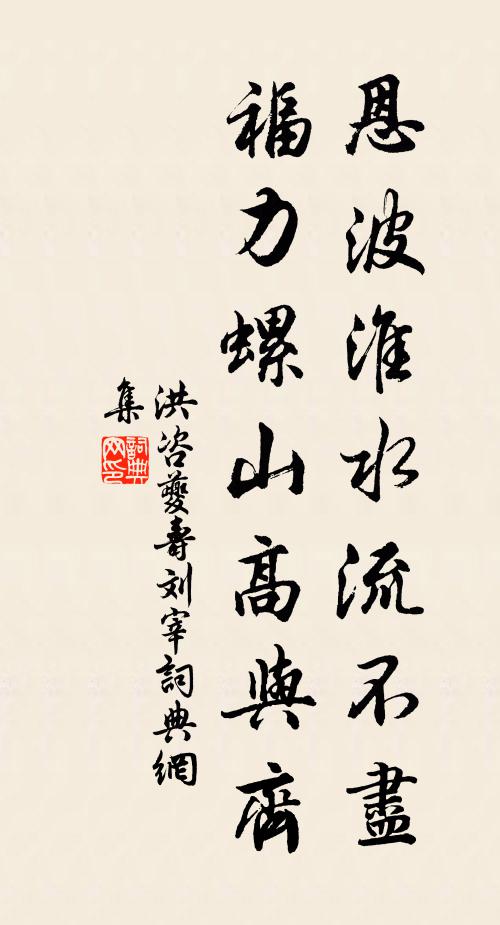 恩波淮水流不盡
福力螺山高與齊
洪咨夔壽刘宰詞典網
集
詞典
网印